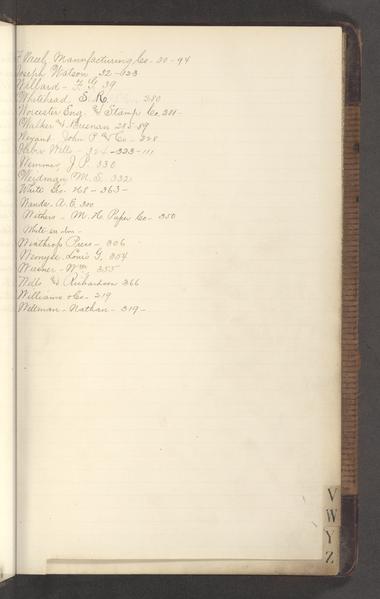 Manufacturing Co - 20-94
Joseph Watson 32-123
Willard - F. G. 39
Whitehead S. R. 280
Worcester Eng. & Stamp Co. 281-
Walker & Bresnan 285-89
Weyant John P & Co - 228
Wells - 324-323-111
Wemmer J. P. 330
Weidman M. S. 332
White Go. 268-363-
Wande. A. C. 300
Withers - M. H. Paper Co - 350
Write en don -
Winthrop Press - 306
Wenyse. Louis G. 354
Wiesner - Wm 355
Wells & Richardson 366
Williams & Co - 219
Wittman - Nathan - 319-
V
W
Y
Z